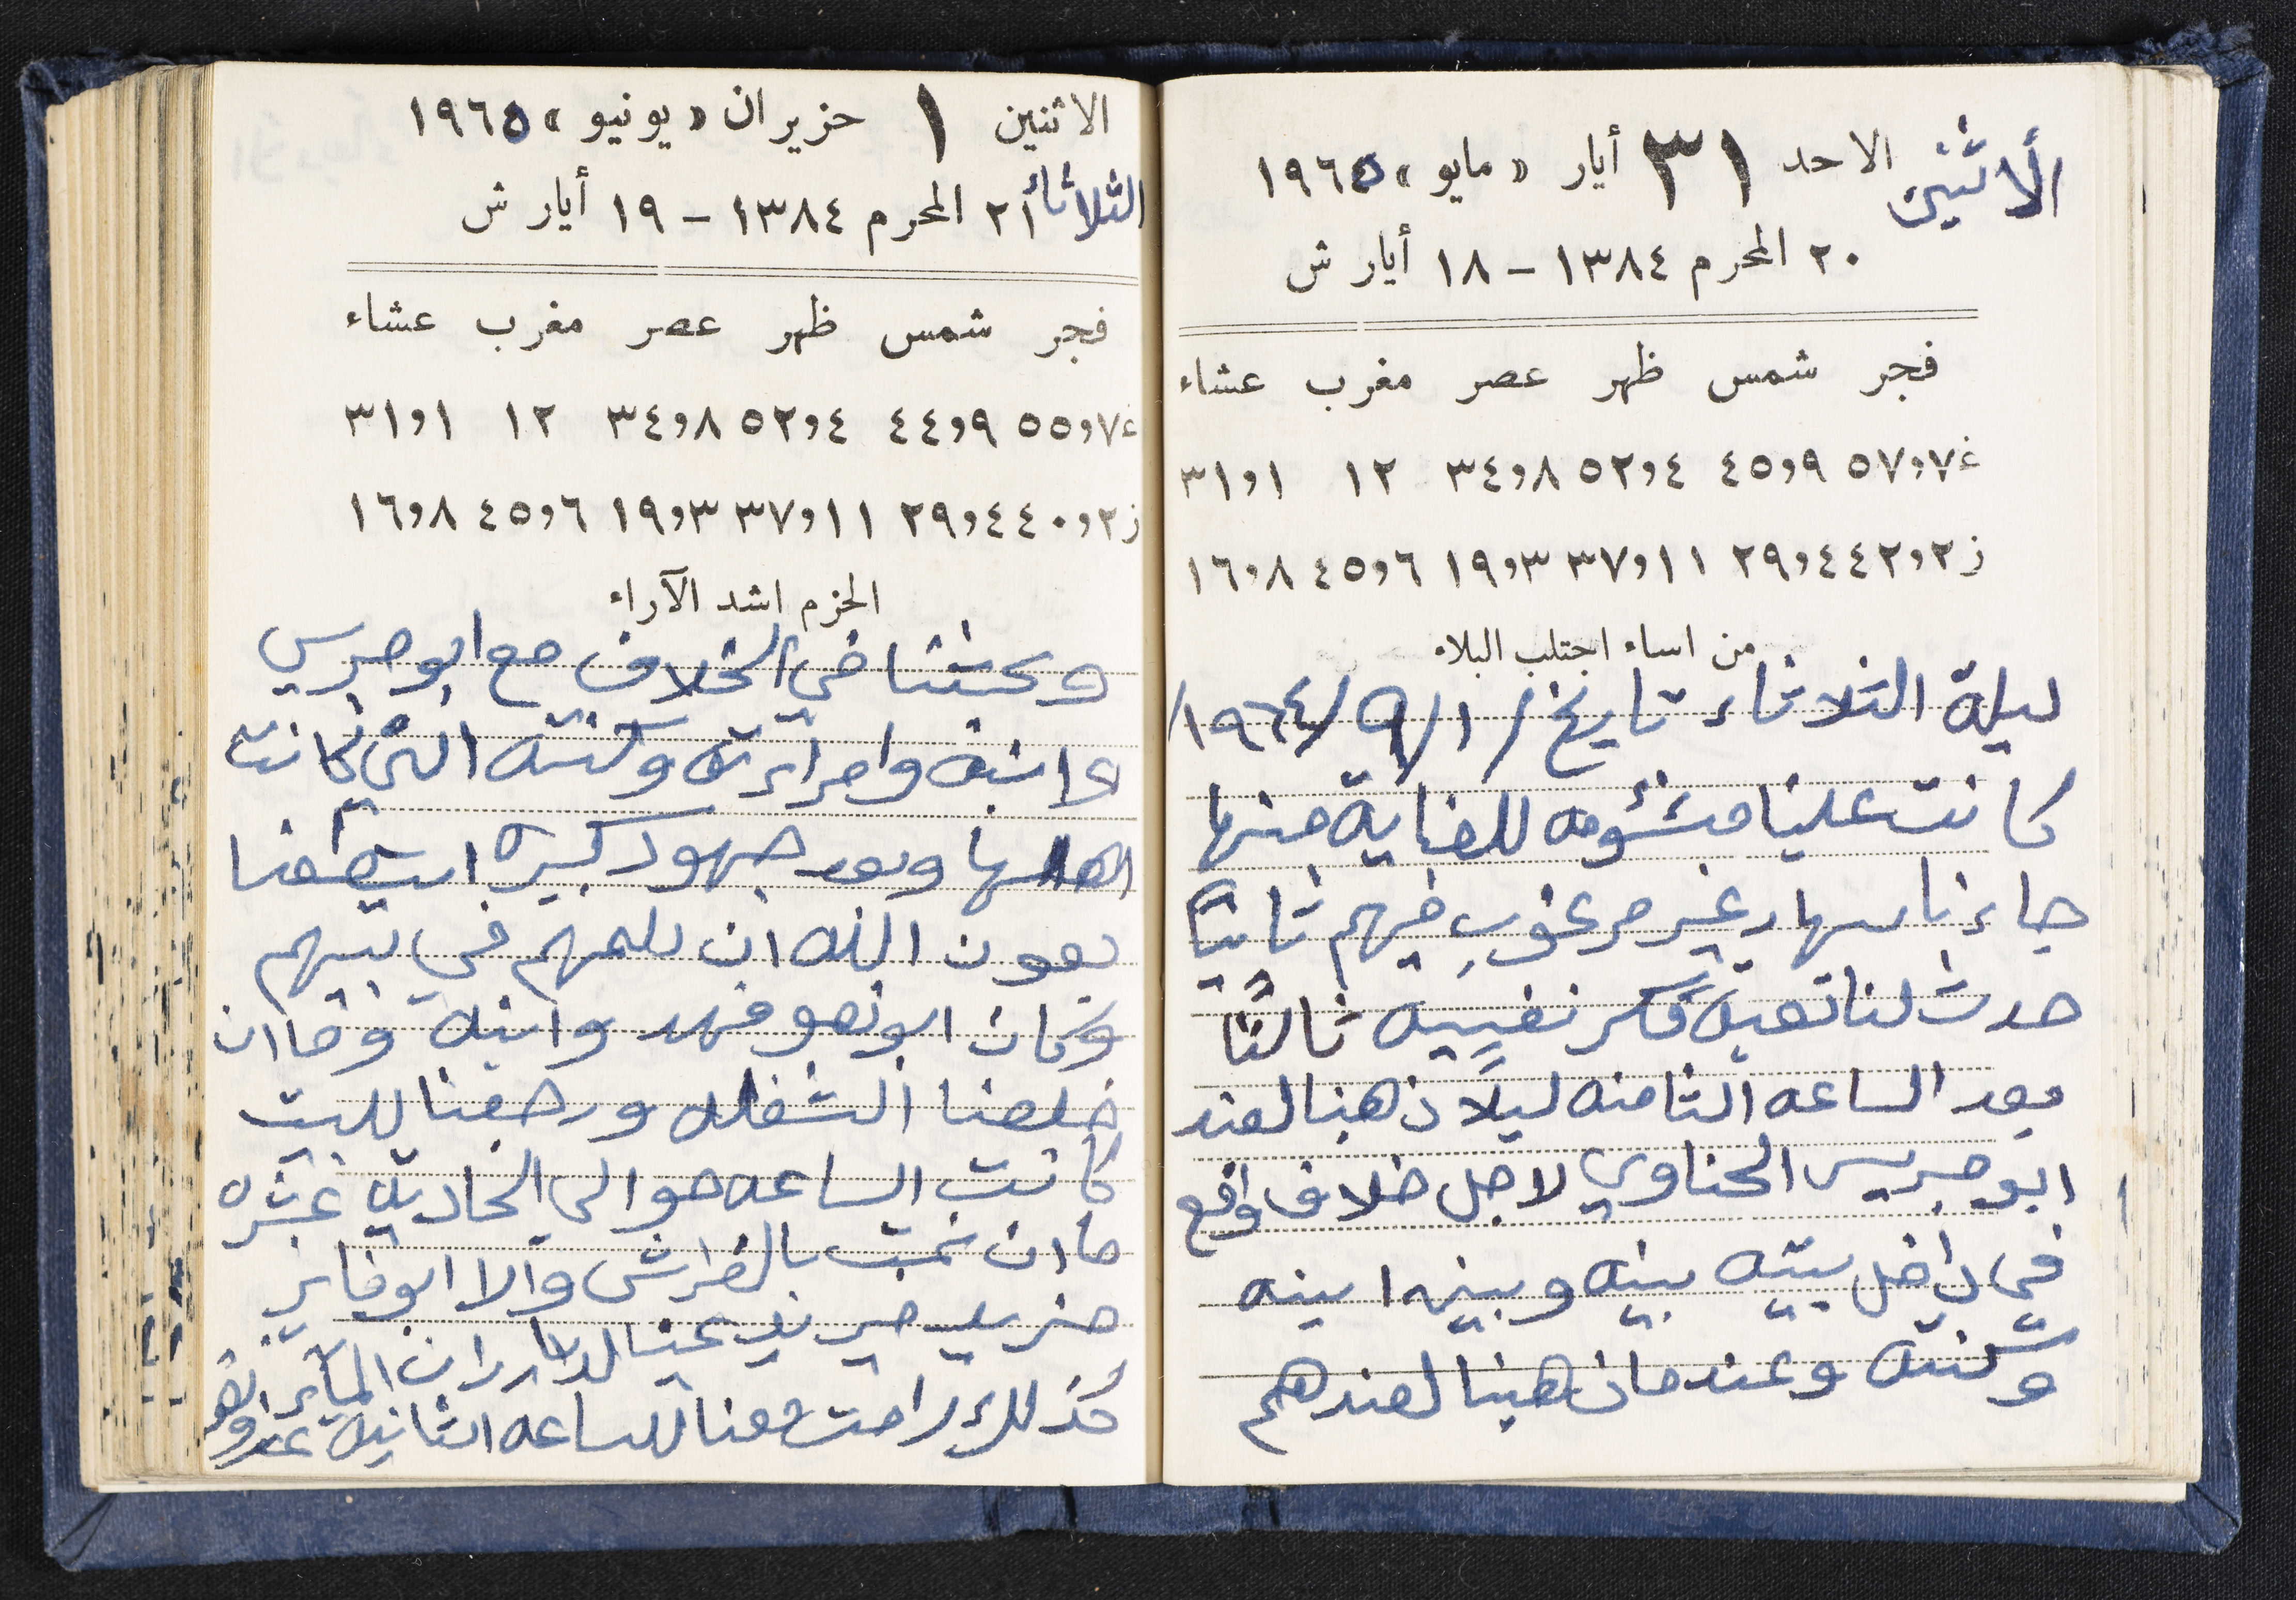 الأثنين الاحد ٣١ أيار «مايو» ١٩٦٥
٢٠ المحرم ١٣٨٤ – ١٨ أيار ش
فجر شمس ظهر عصر مغرب عشاء
غ ٧و٥٧ ٩و٤٥ ٤و٥٢ ٨و٣٤ ١٢ ١و٣١
ز ٢و٤٢ ٤و٢٩ ١١و٣٧ ٣و١٩ ٦و٤٥ ٨و١٦
من اساء اجتلب البلاء
ليلة الثلاثاء تاريخ /١/٩/١٩٦٤/
كانت علينا مشئومه للغاية منها
جاءنا سهار غير مرغوب فيهم ثانيًا
حدث لنا تعبة فكر نفسيه ثالثًا
بعد الساعه الثامنه ليلًا ذهبنا لعند
ابو جريس الحناوي لاجل خلاف واقع
في داخل بيته بينه وبين ابنه
وكنته وعندما ذهبنا لعندهم
الاثنين ١ حزيران «يونيو» ١٩٦٥
الثلاثاء ٢١ المحرم ١٣٨٤ – ١٩ أيار ش
فجر شمس ظهر عصر مغرب عشاء
غ ٧و٥٥ ٩و٤٤ ٤و٥٢ ٨و٣٤ ١٢ ١و٣١
ز ٢و٤٠ ٤و٢٩ ١١و٣٧ ٣و١٩ ٦و٤٥ ٨و١٦
الحزم اشد الآراء
وبحثنا في الخلاف مع ابو جريس
وابنه وامراءته وكنته التي كانت
وبعد جهود كبيره استطعنا
بعون الله ان نلمهم في بيتهم
وكان ابو نصر فهد وابنه وما ان
خلصنا الشغله ورجعنا للبيت
كانت الساعه حوالي الحادية عشره
ما ان نمت بالفراش والا ابو فايز
يريد عنا
كذلك راحت معنا للساعه الثانية عشر